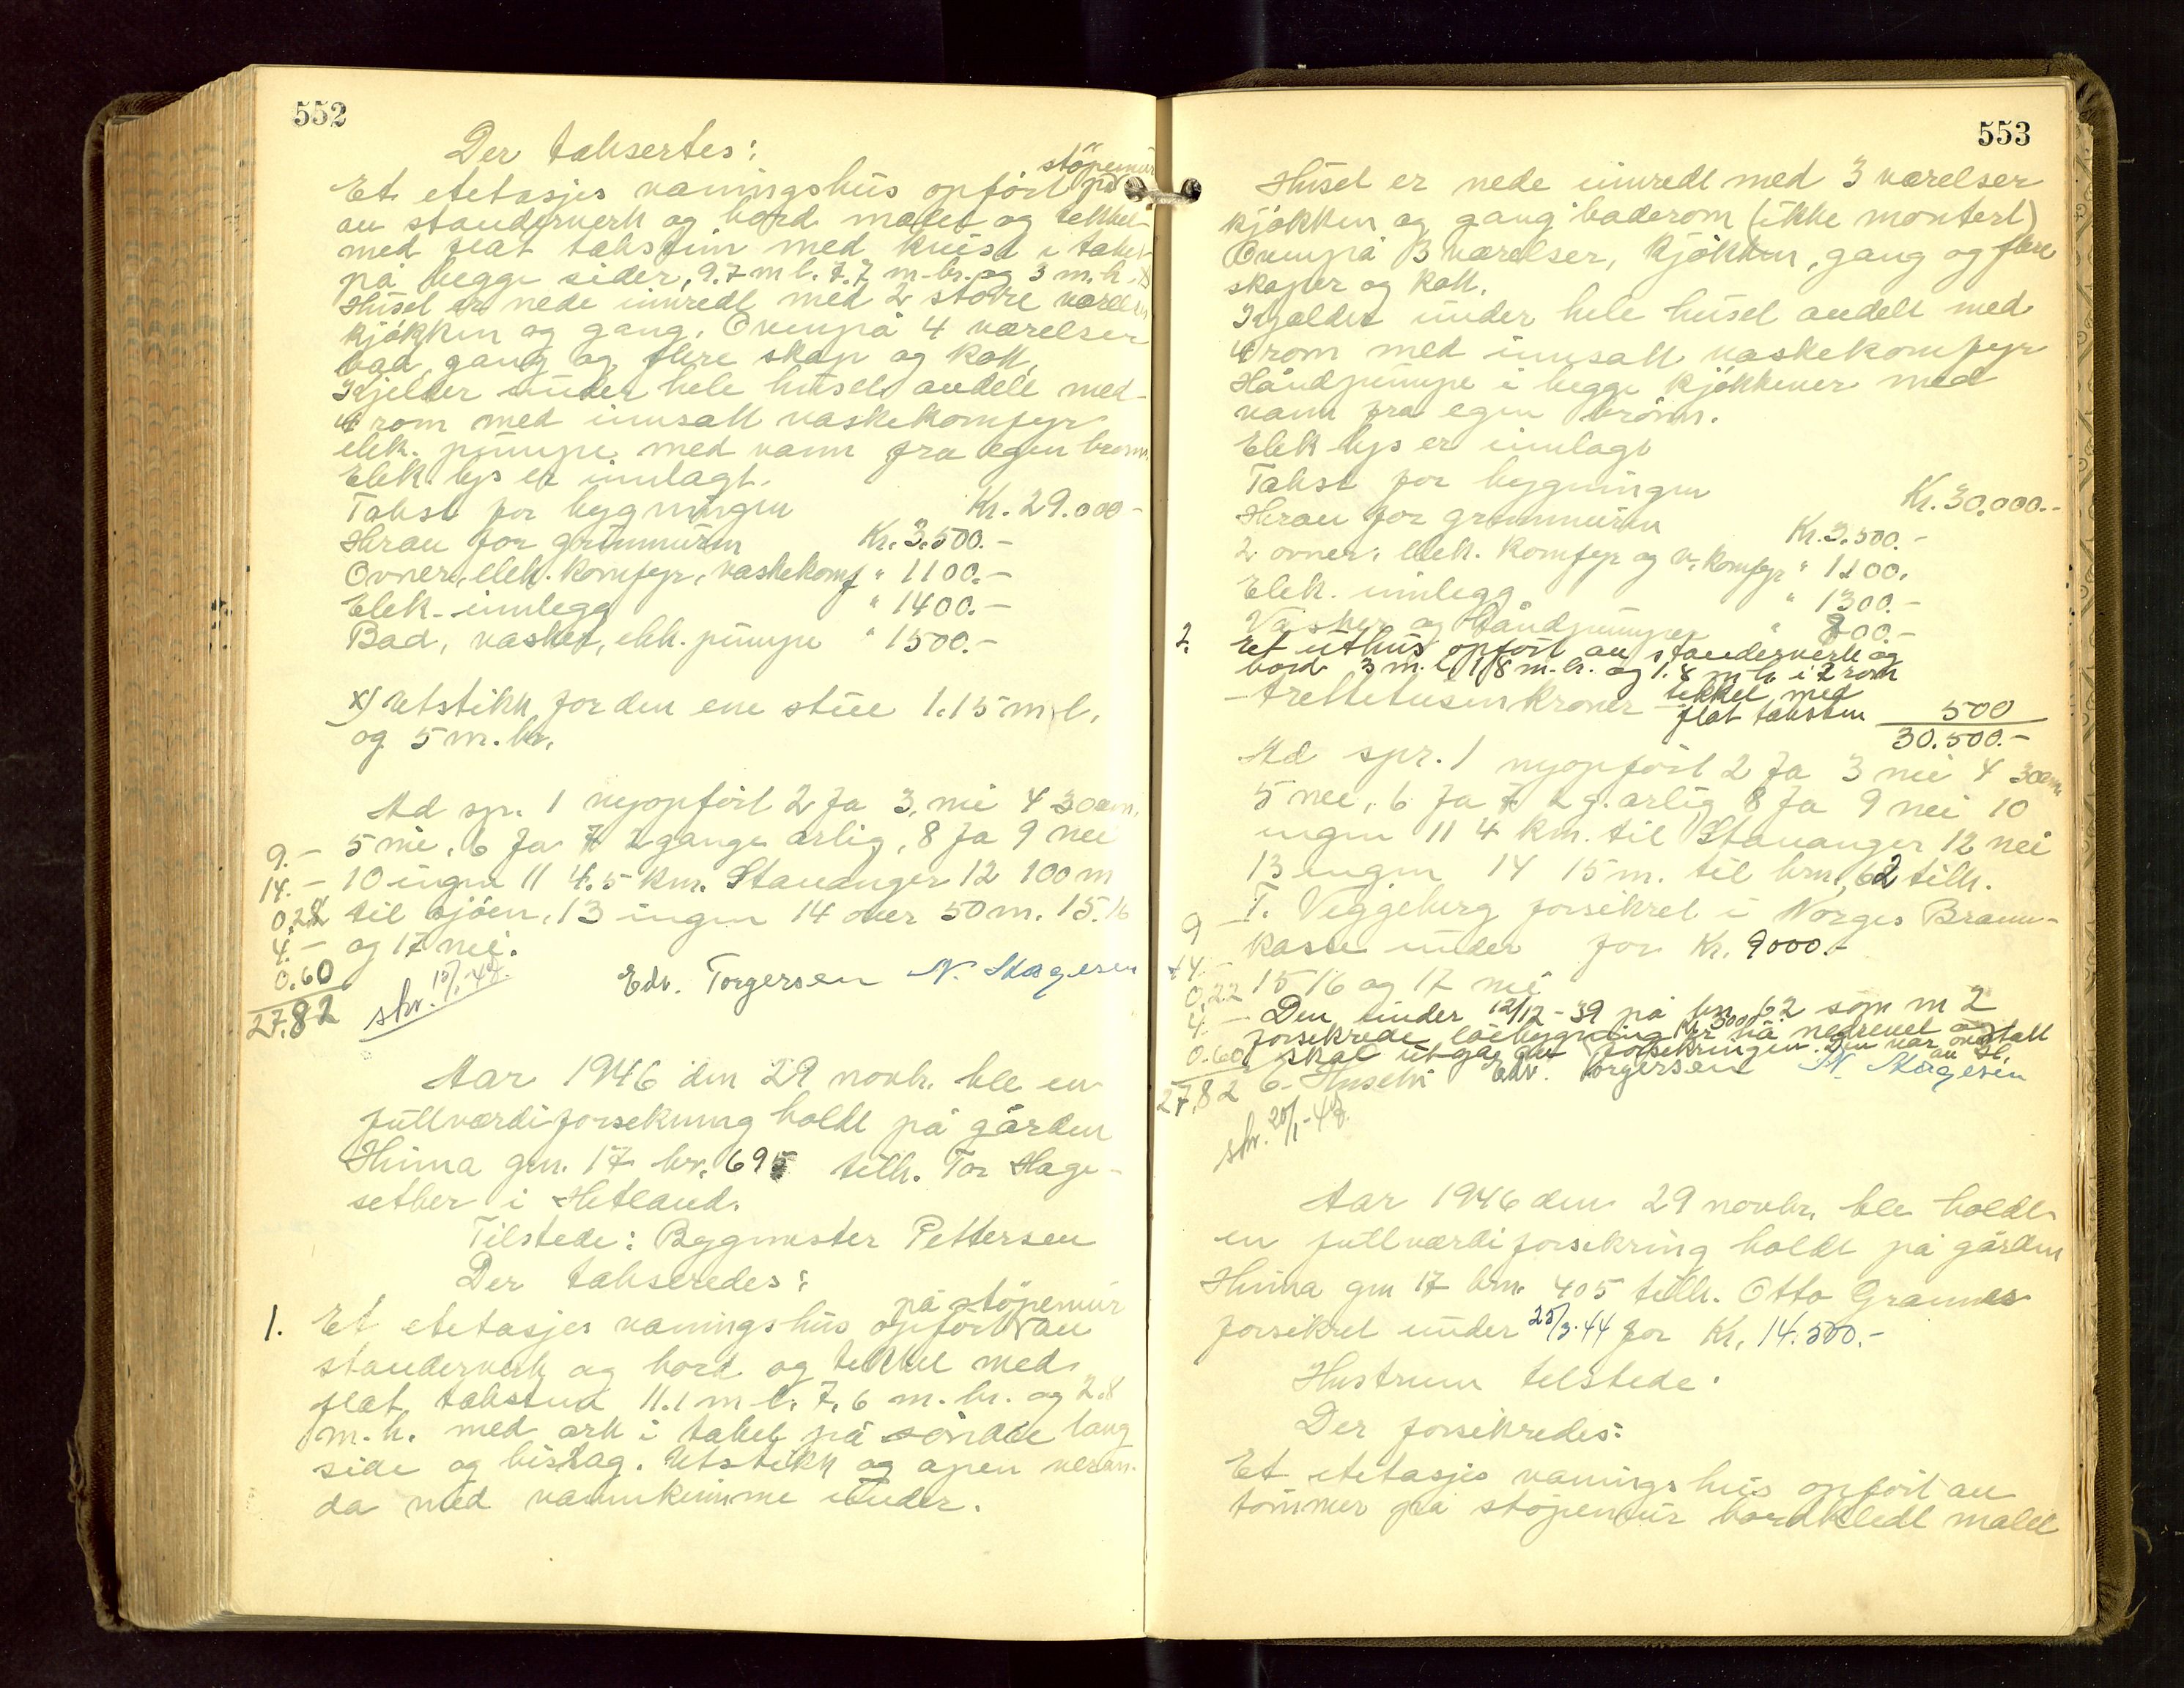 552
Der taksertes:
Et etetasjes vaningshus opført på støpemur
av standerverk og bord malet og tekket
med flat takstein med kvist i taket
på begge sider, 9.7 m l. 7.7 m. br. og 3 m. h. x)
Huset er nede innredt med 2 større værelser
kjøkken og gang. Ovenpå 4 værelser
bad, gang og flere skap og kott.
Kjelder under hele huset avdelt med
4 rom med innsatt vaskekomfyr
elek. pumpe med vann fra egen brønn.
Elek. lys er innlagt.
Takst for bygningen Kr. 29.000-
Herav for grunnmuren Kr. 3.500.-
Ovner, elek. komfyr, vaskekomf " 1100.-
Elek. innlegg " 1400.-
Bad, vasker, elek. pumpe " 1500.-
x) Utstikk for den ene stue 1.15 m l.
og 5 m. br.
Ad sp. 1 nyopført 2 Ja 3. nei 4 30 cm.
9.- 5 nei, 6 Ja 7 2 gange årlig, 8 Ja 9 nei
14.- 10 ingen 11 4.5 km. Stavanger 12 100 m
0,22 til sjøen, 13 ingen 14 over 50 m. 15. 16
4.- og 17 nei.
0.60 Edv. Torgersen N. Hagesen
27,82 skr. 15/1-47.
Aar 1946 den 29 novbr. ble en
fullværdiforsekring holdt på gården
Hinna gn. 17 br. 695 tilh. Tor Hage-
sether i Hetland.
Tilstede: Byggmester Pettersen
Der takseredes:
1. Et etetasjes vaningshus opført på støpemur av
standerverk og bord og tekket med
flat takstein 11.1 m l. 7,6 m. br. og 2.8
m. h. med ark i taket på søndre lang
side og bislag. Utstikk og åpen veran-
da med vannkumme under.
553
Huset er nede innredt med 3 værelser
kjøkken og gang baderom (ikke montert)
Ovenpå 3 værelser, kjøkken, gang og flere
skaper og kott.
Kjelder under hele huset avdelt med
4 rom med innsatt vaskekomfyr
Håndpumpe i begge kjøkkener med
vann fra egen brønn.
Elek lys er innlagt
Takst for bygningen Kr. 30.000.-
Herav for grunnmuren Kr. 3.500.-
2 ovner, elek. komfyr og v. komfyr " 1200.
Elek. innlegg " 1300.-
Vasker og håndpumper " 800.-
2. Et uthus opført av standerverk og
bord 3 m. l. 1,8 m. br. og 1.8 m h. i 2 rom
- trettetusen kroner - tekket med
flat takstein 500
30.500.-
Ad spr. 1 nyopført 2 Ja 3 nei 4 30 cm.
5 nei, 6 Ja 7 2 g. årlig 8 Ja 9 nei 10
ingen 11 4 km. til Stavanger 12 nei
13 ingen 14 15 m. til brn. 62 tilh.
9 - T. Veggeberg forsikret i Norges Brann-
kasse under for Kr. 9000.-
14.- 15 16 og 17 nei
0,22 Den under 12/12-39 på brn 62 som m 2
4.- forsekrede løebygning Kr 3000 er nå nedrevet og
0.60 skal utgå av forsekringen. Den var overtatt
av H.
27,82 C. Husebø Edv. Torgersen N. Hagesen
skr. 20/1-47.
Aar 1946 den 29 novbr. ble holdt
en fullværdiforsekring holdt på gården
Hinna gn 17 brn. 405 tilh. Otto Grannes
forsikret under 25/3.44 for Kr. 14.500.-
Hustruen tilstede.
Der forsikredes:
Et etetasjes vanings hus opført av
tømmer på støpemur bordkledt malet